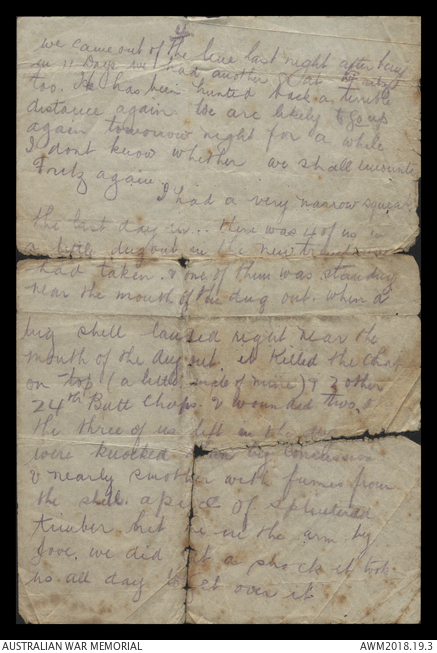 3
we came out of the line last night after being
in 11 Days we had another at
too. He has been hunted back a terrible
distance again. We are likely to go up
again tomorrow night for a while
I dont know whether we shall encounter
Fritz again.
I had a very narrow squeak
the last day in.. there was 4 of us in
a little dugout in the new trench we
had taken. & one of them was standing
near the mouth of the dug out. when a
big shell landed right near the
mouth of the dug out. it killed the Chap
on top (a little mate of mine) & 2 other
24th Batt Chaps. & wounded two. &
the three of us left in the
were knocked by concussion
& nearly smother with fumes from
the shell. a piece of splintered
timber hit me in the arm. by
Jove, we did get a shock it took
us all day to get over it
AUSTRALIAN WAR MEMORIAL
AWM2018.19.3